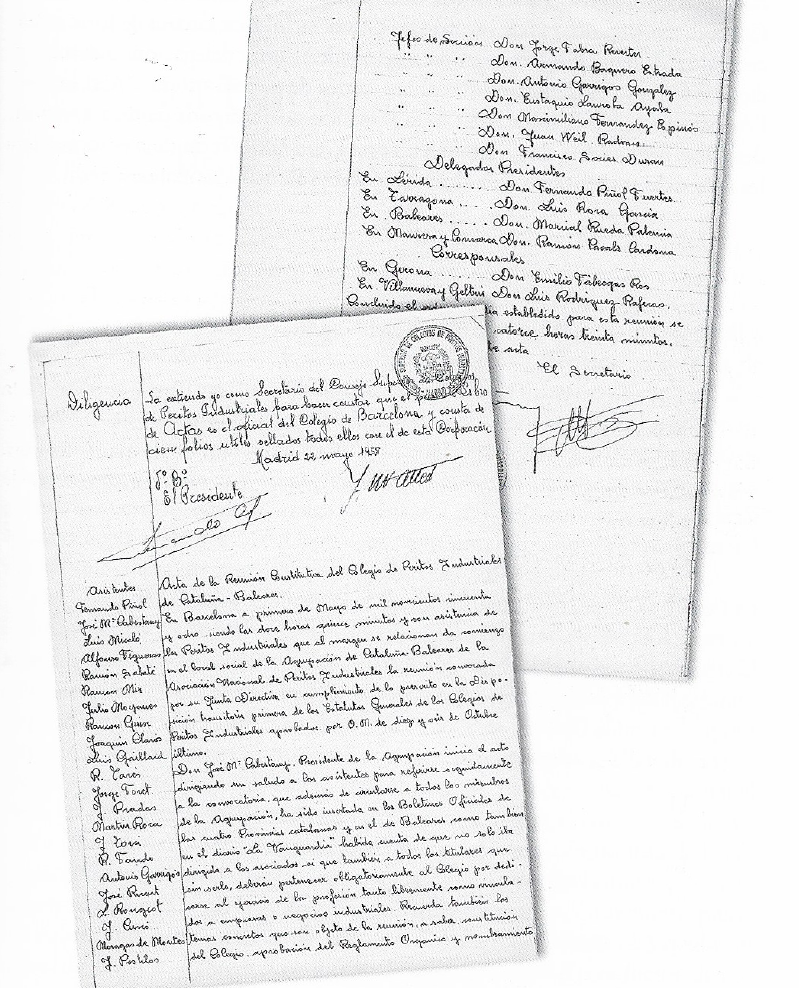 Jefes de Sección Don Jorge Fabra Reverter
" " " Don. Armando Baquero Estrada
" " " Don. Antonio Garrigos Gonzalez
" " " Don. Eustaquio Ayala
" " " Don Maximiliano Fernandez Espinós
" " " Don. Juan Weil
" " " Don Francisco Soler Duran
Delegados Presidentes
En Lérida ...... Don Fernando Piñol Fuertes.
En Tarragona .... Don. Luis Rosa García
En Baleares ..... Don. Marcial Rueda Palencia
En Manresa y Comarca Don. Ramón Cardona
Corresponsales
En Gerona ...... Don Emilio Fábregas Ros
En Villanueva y Geltrú Don Luis Rodriguez Raferas.
Concluido el establecido para esta reunión se
catorce horas treinta minutos.
acta
El Secretario
Diligencia
La extiendo yo como Secretario del Consejo
de Peritos Industriales para hacer constar que el Libro
de Actas es el oficial del Colegio de Barcelona y consta de
cien folios utiles sellados todos ellos con el de esta Corporación
Madrid 22 mayo 1958
Vº Bº
El Presidente
Asistentes
Fernando Piñol
José Mª Cabestany
Luis Micaló
Alfonso Figueras
Ramón Sabaté
Ramón Mir
Julio
Ramon
Joaquin Clarió
Luis Gaillard
R. Tares
Jorge Foret
J. Pradas
Martin Roca
J. Tosa
R. Farado
Antonio Garrigós
José Ricart
J.
Moragas de Montes
J.
Acta de la Reunión Constitutiva del Colegio de Peritos Industriales
de Cataluña - Baleares.
En Barcelona a primero de Mayo de mil novecientos cincuenta
y ocho, siendo las doce horas quince minutos y con asistencia de
los Peritos Industriales que al margen se relacionan da comienzo
en el local social de la Agrupación de Cataluña Baleares de la
Asociación Nacional de Peritos Industriales la reunión convocada
por su Junta Directiva en cumplimiento de lo previsto en la Dispo-
sición transitoria primera de los Estatutos Generales de los Colegios de
Peritos Industriales aprobados por O.M. de diez y seis de Octubre
último.
Don José Mª Cabestany, Presidente de la Agrupación inicia el acto
dirigiendo un saludo a los asistentes para referirse seguidamente
a la convocatoria, que además de circularse a todos los miembros
de la Agrupación, ha sido insertada en los Boletines Oficiales de
las cuatro Provincias catalanas y en el de Baleares como tambien
en el diario "La Vanguardia" habida cuenta de que no solo iba
dirigida a los asociados si que también a todos los titulares que
sin serlo, deberán pertenecer obligatoriamente al Colegio por dedi-
carse al ejercicio de la profesión tanto libremente como vincula-
dos a empresas o negocios industriales. Recuerda también los
temas concretos que son objeto de la reunión, a saber constitución
del Colegio, aprobación del Reglamento Organico y nombramiento